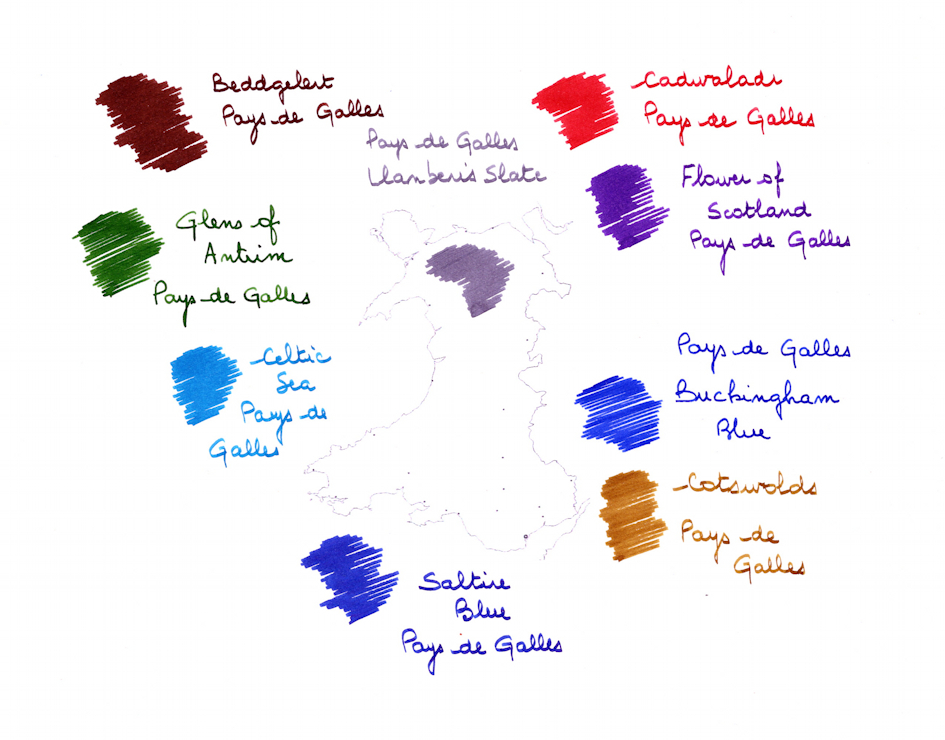 Beddgelert
Pays de Galles
Pays de Galles
Llanberis Slate
Cadwaladr
Pays de Galles
Flower of
Scotland
Pays de Galles
Glens of
Antrim
Pays de Galles
Celtic
Sea
Pays de
Galles
Pays de Galles
Buckingham
Blue
Cotswolds
Pays de
Galles
Saltire
Blue
Pays de Galles